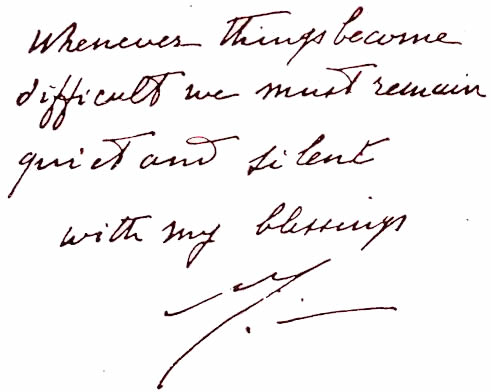 Whenever things become
difficult we must remain
quiet and silent
with my blessings